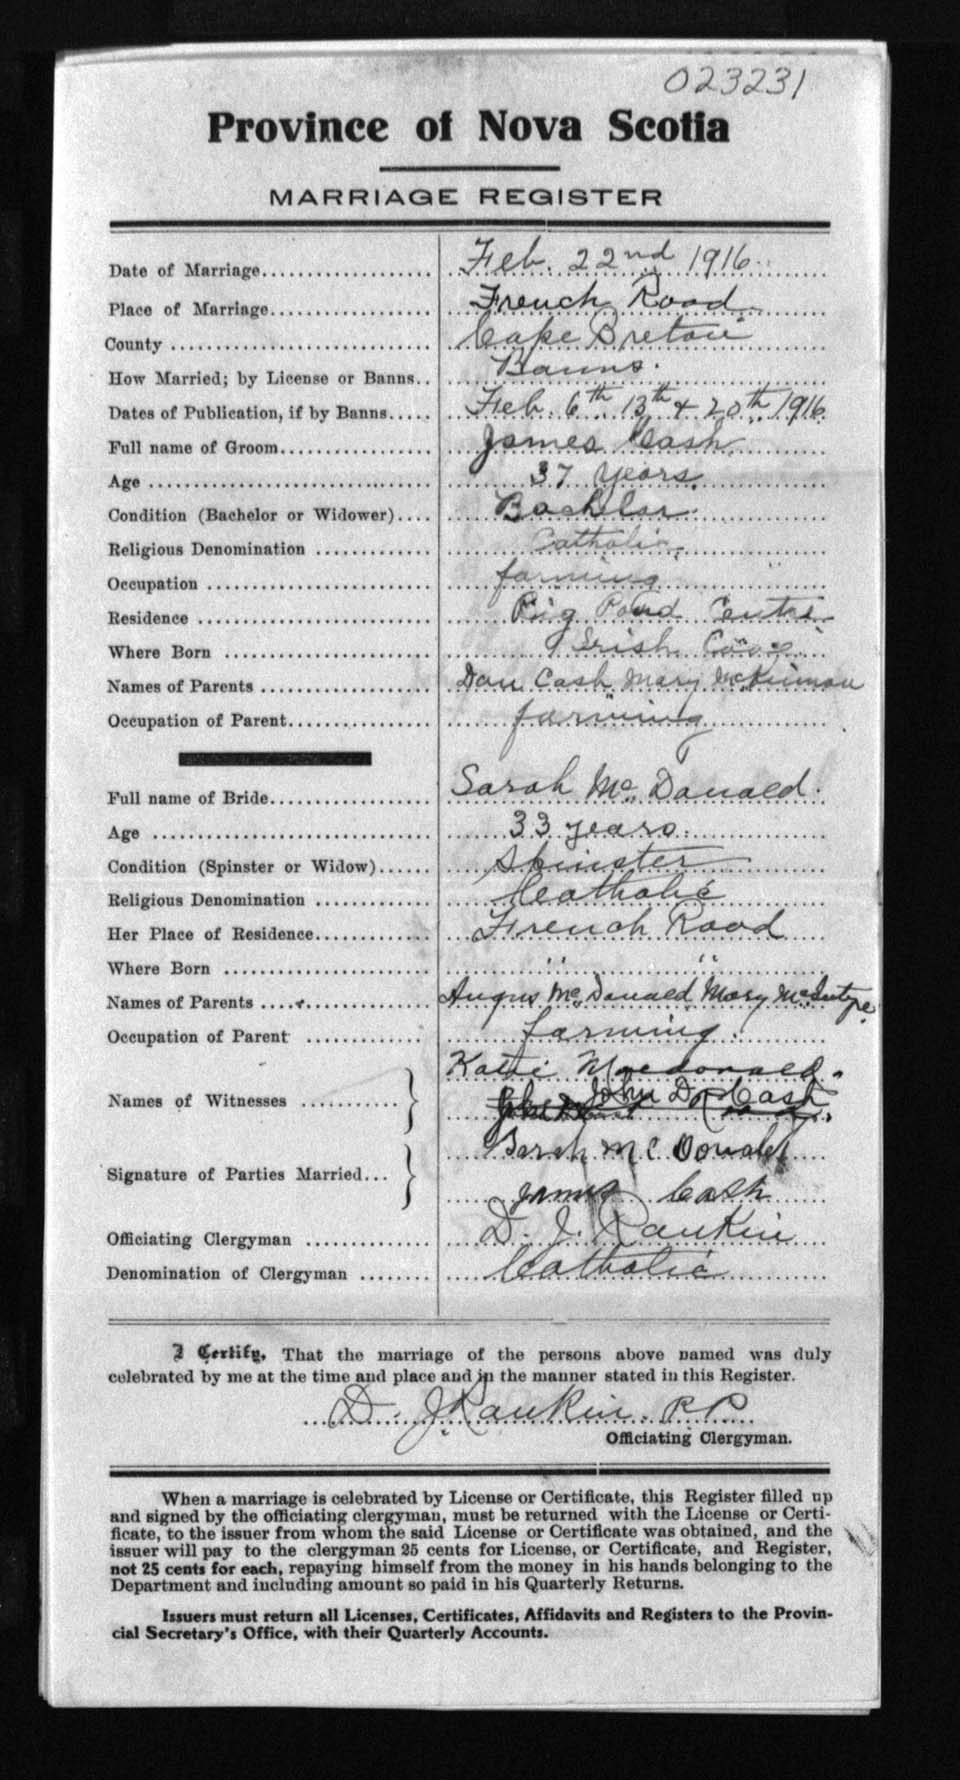 023231
Province of Nova Scotia
MARRIAGE REGISTER
Date of Marriage.................... Feb. 22nd 1916
Place of Marriage................... French Road
County .............................. Cape Breton
How Married; by License or Banns.. Banns.
Dates of Publication, if by Banns..... Feb. 6th 13th & 20th 1916
Full name of Groom.................. James Cash
Age ................................. 37 years
Condition (Bachelor or Widower).... Bachelor
Religious Denomination ............. Catholic
Occupation .......................... farming
Residence ........................... Big Pond Centre
Where Born ......................... Irish Cove
Names of Parents .................... Dan Cash Mary McKinnon
Occupation of Parent................. farming
Full name of Bride................... Sarah Mc Donald.
Age ................................. 33 years
Condition (Spinster or Widow)...... Spinster
Religious Denomination ............. Catholic
Her Place of Residence.............. French Road
Where Born ......................... " "
Names of Parents .................... Angus McDonald Mary McIntyre
Occupation of Parent ............. farming.
Katie Macdonald
Names of Witnesses ........... John D Cash
Sarah McDonald
Signature of Parties Married...
James Cash
Officiating Clergyman ............. D. J. Rankin
Denomination of Clergyman ........ Catholic
I Certify, That the marriage of the persons above named was duly
celebrated by me at the time and place and in the manner stated in this Register.
D. J. Rankin. P.P.
Officiating Clergyman.
When a marriage is celebrated by License or Certificate, this Register filled up
and signed by the officiating clergyman, must be returned with the License or Certi-
ficate, to the issuer from whom the said License or Certificate was obtained, and the
issuer will pay to the clergyman 25 cents for License, or Certificate, and Register,
not 25 cents for each, repaying himself from the money in his hands belonging to the
Department and including amount so paid in his Quarterly Returns.
Issuers must return all Licenses, Certificates, Affidavits and Registers to the Provin-
cial Secretary's Office, with their Quarterly Accounts.